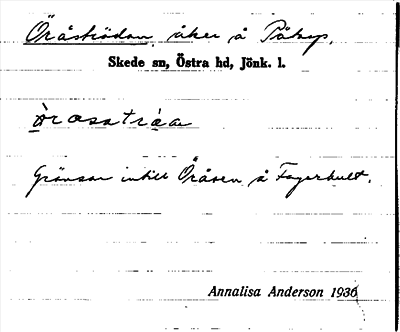 Öråströdan, åker å Påkop.
Skede sn, Östra hd, Jönk. l.
Gränsar intill Öråsen å Fagerhult.
Annalisa Anderson 1936